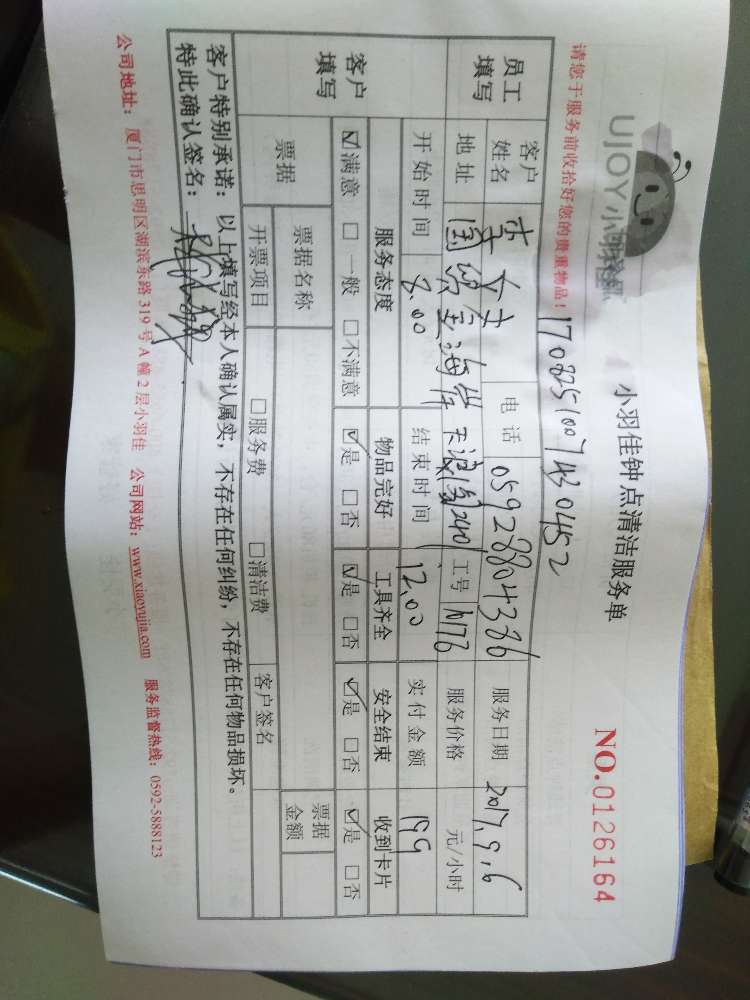 UJOY 小羽佳
小羽佳钟点清洁服务单
NO.0126164
请您于服务前收拾好您的贵重物品！
1708251007430452
员工填写 客户姓名 李女士 电话 05928804386 服务日期 2017.9.6
地址 国贸金海岸 天浪阁2401 工号 N176 服务价格 元/小时
客户填写 开始时间 8.00 结束时间 12.00 实付金额 199
服务态度 物品完好 工具齐全 安全结束 收到卡片
☑满意 □一般 □不满意 ☑是 □否 ☑是 □否 ☑是 □否 ☑是 □否
票据 票据名称 客户签名 票据金额
开票项目 □服务费 □清洁费
客户特别承诺：以上填写经本人确认属实，不存在任何纠纷，不存在任何物品损坏。
特此确认签名：
公司地址：厦门市思明区湖滨东路 319 号 A 幢 2 层小羽佳 公司网站：www.xiaoyujia.com 服务监督热线：0592-5888123